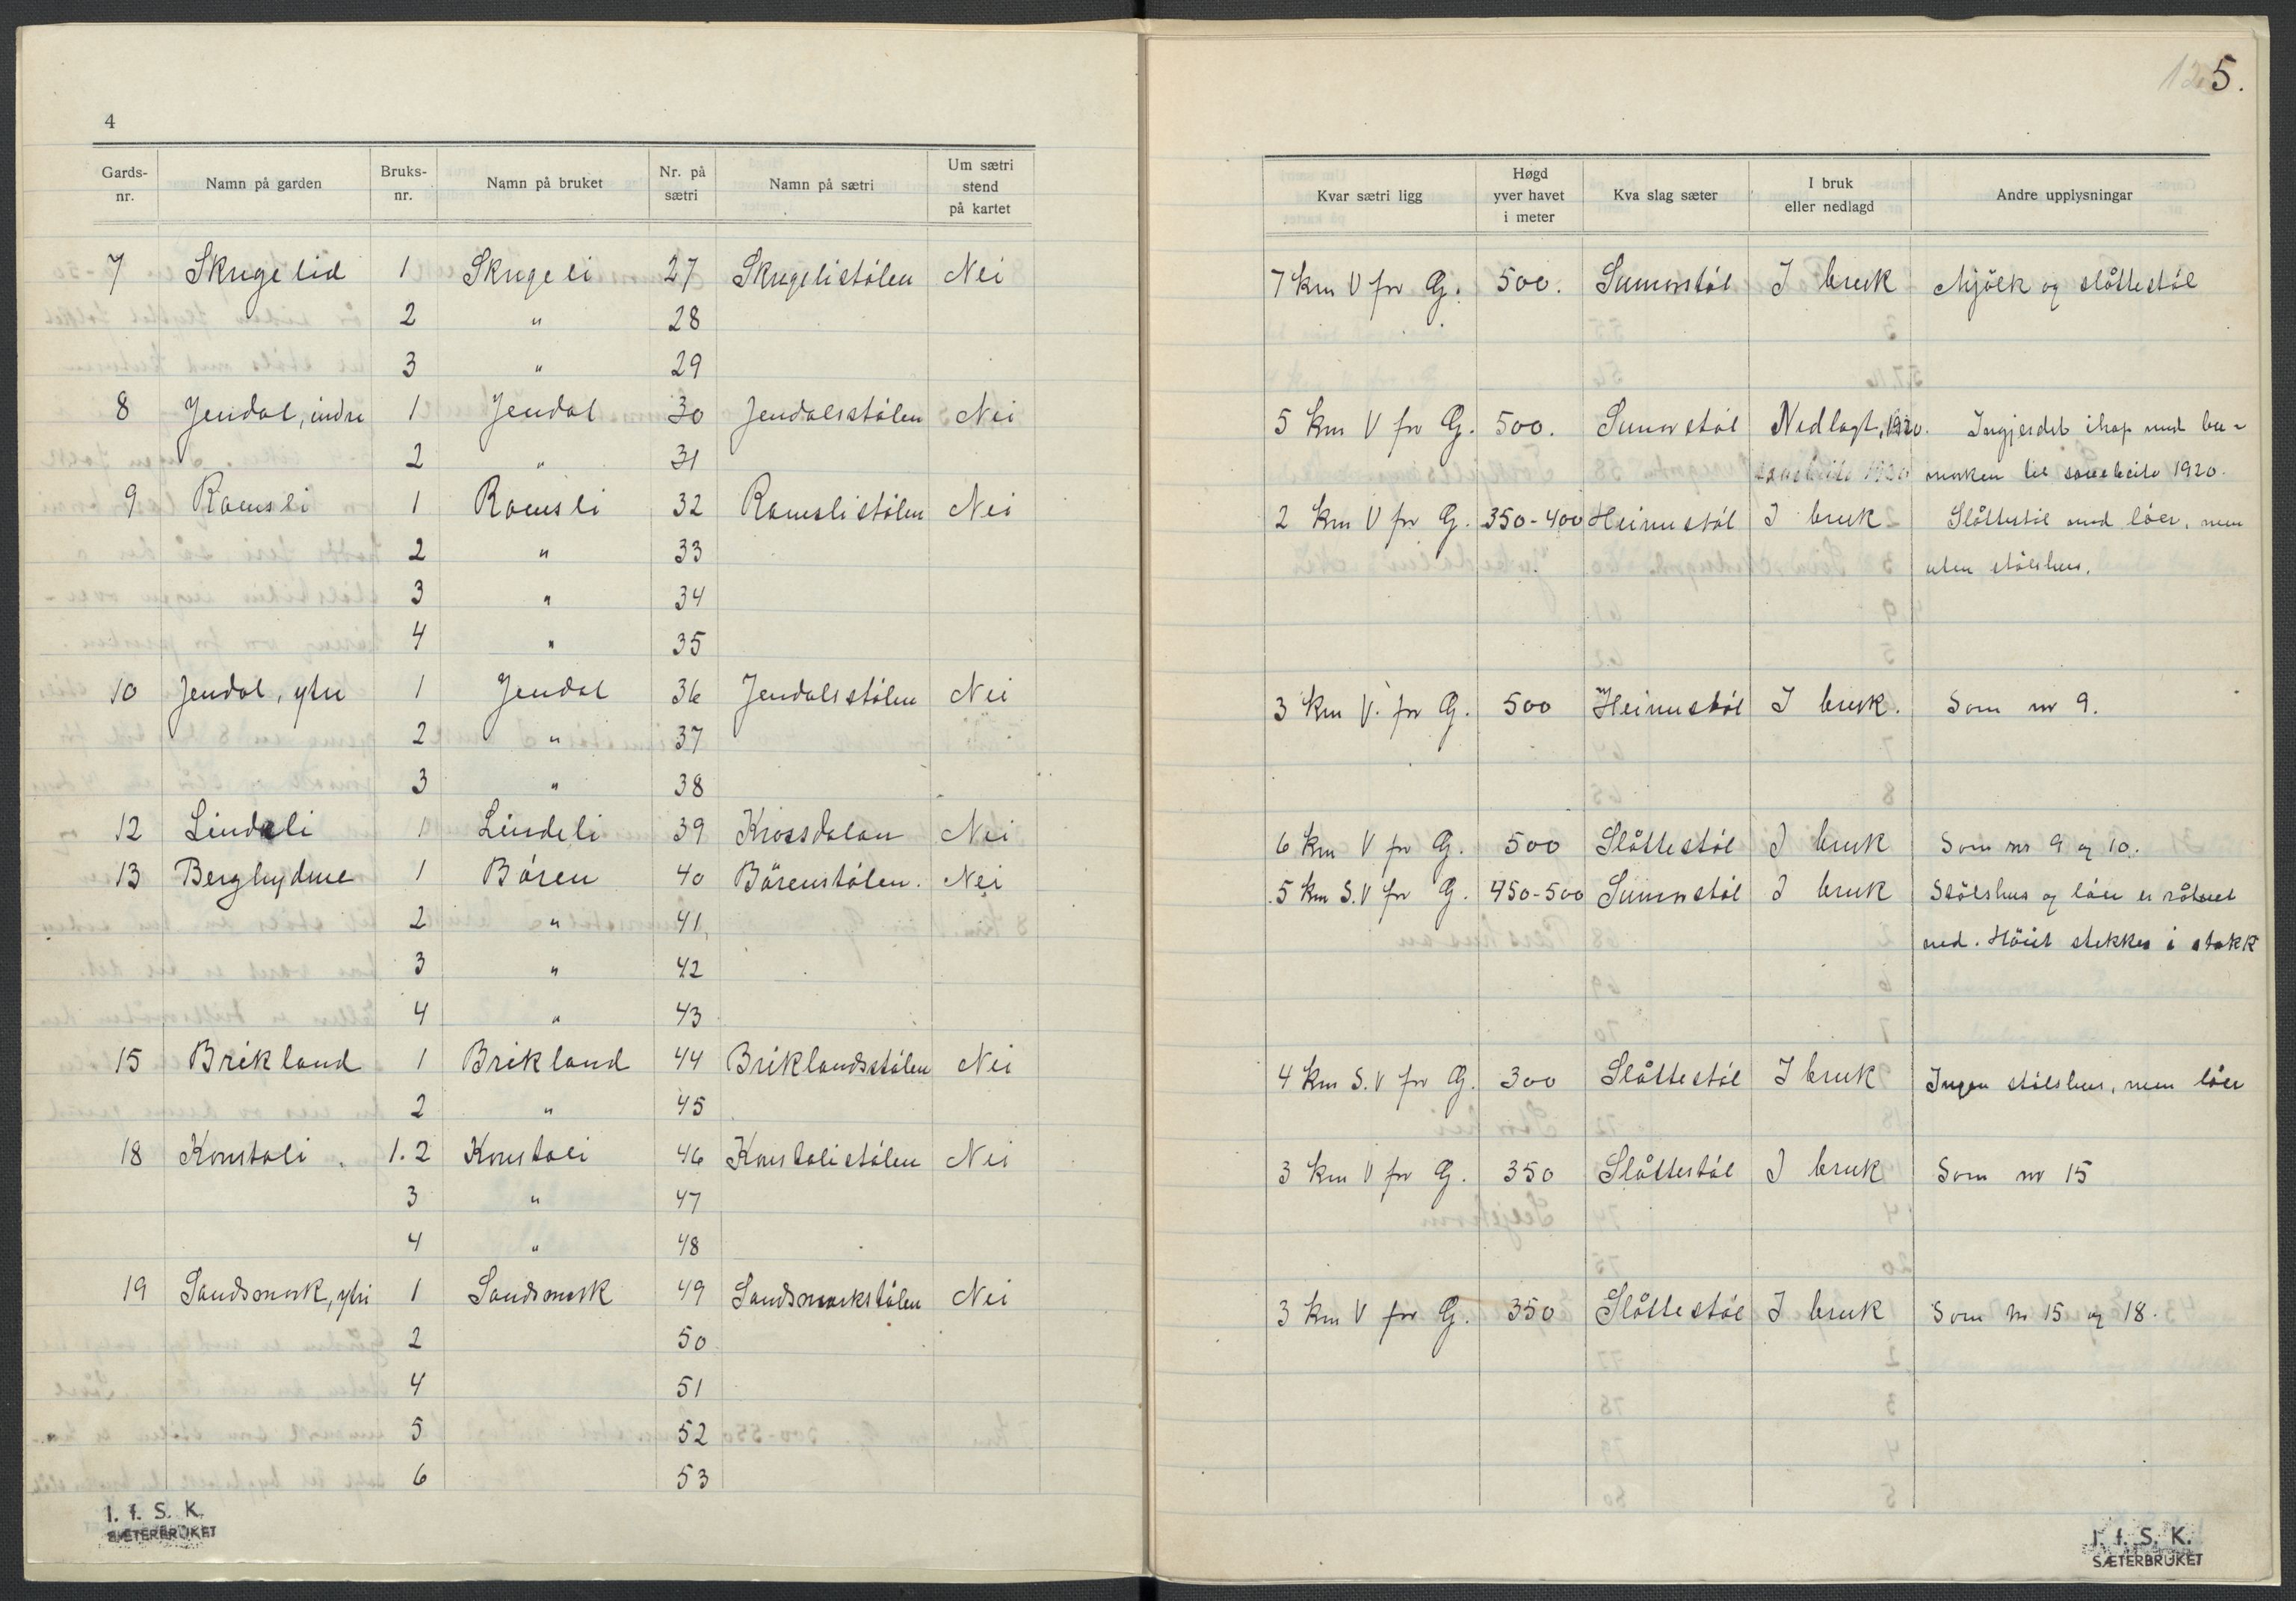 4
Gards-nr. Namn på garden Bruks-nr. Namn på bruket Nr. på sætri Namn på sætri Um sætri stend på kartet
7 Skrugelid 1 Skrugeli 27 Skrugelistölen Nei
2 " 28
3 " 29
8 Jendal, indre 1 Jendal 30 Jendalsstölen Nei
2 " 31
9 Ramsli 1 Ramsli 32 Ramslistölen Nei
2 " 33
3 " 34
4 " 35
10 Jendal, ytre 1 Jendal 36 Jendalsstölen Nei
2 " 37
3 " 38
12 Lindeli 1 Lindeli 39 Krossdalan Nei
13 Berghydne 1 Bören 40 Börenstölen. Nei
2 " 41
3 " 42
4 " 43
15 Brikland 1 Brikland 44 Briklandsstölen Nei
2 " 45
18 Konstali 1.2 Konstali 46 Konstalistölen Nei
3 " 47
4 " 48
19 Sandsmork, ytri 1 Sandsmork 49 Sandsmorkstölen Nei
2 50
4 51
5 52
6 53
I. f. S. K.
SÆTERBRUKET
5.
Kvar sætri ligg Høgd yver havet i meter Kva slag sæter I bruk eller nedlagd Andre upplysningar
7 km V fra G. 500. Sumorstöl I bruk Mjölk og slåttestöl
5 km V fra G. 500. Sumorstöl Nedlagt, 1920. Ingjerdet ihop med bu-
morken til sauebeite 1920.
2 km V fra G. 350-400 Heimestöl I bruk Slåttestöl med löer, men
uten stölshus.
3 km V. fra G. 500 Heimestöl I bruk. Som nr 9.
6 km V fra G. 500 Slåttestöl I bruk Som nr 9 og 10.
5 km S.V fra G. 450-500 Sumorstöl I bruk Stölshus og löer er råtnet
ned. Höiet stekkes i stakk
4 km S.V fra G. 300 Slåttestöl I bruk Ingen stölshus, men löer
3 km V fra G. 350 Slåttestöl I bruk Som nr 15
3 km V fra G. 350 Slåttestöl I bruk Som nr 15 og 18.
I. f. S. K.
SÆTERBRUKET